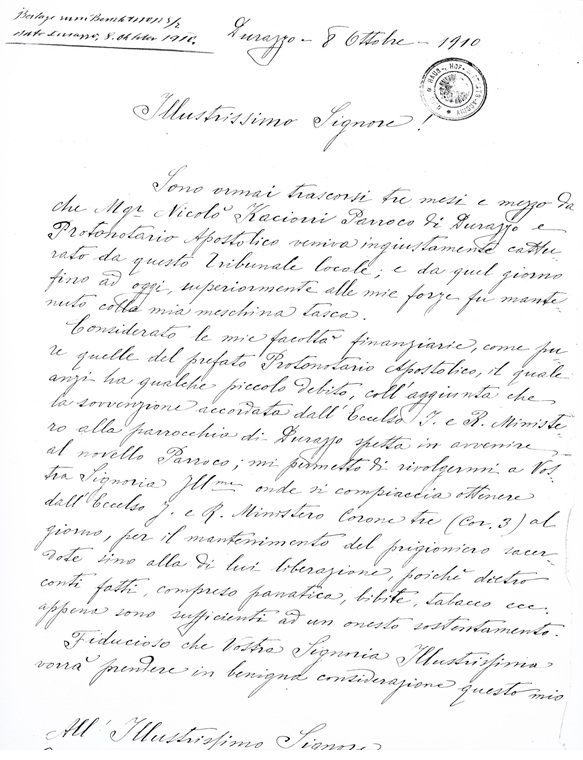 Beilage zum Bericht
dato Durazzo, 8. Oktober 1910.
Durazzo - 8 Ottobre - 1910
HAUS- HOF-
Illustrissimo Signore!
Sono ormai trascorsi tre mesi e mezzo da
che Mgr. Nicolò Kaciorri Parroco di Durazzo e
Protonotario Apostolico veniva ingiustamente cattu
rato da questo Tribunale locale; e da quel giorno
fino ad oggi, superiormente alle mie forze fu mante
nuto colla mia meschina tasca.
Considerato le mie facoltà finanziarie, come pu
re quelle del prefato Protonotario Apostolico, il quale
anzi ha qualche piccolo debito, coll'aggiunta che
la sovvenzione accordata dall'Eccelso I. e R. Ministe
ro alla parrocchia di Durazzo spetta in avvenire
al novello Parroco; mi permetto di rivolgermi a Vos
tra Signoria Illma onde si compiaccia ottenere
dall'Eccelso I. e R. Ministero Corone tre (Cor. 3) al
giorno, per il mantenimento del prigioniero sacer
dote sino alla di lui liberazione, poichè dietro
conti fatti, compreso panatica, bibite, tabacco ecc.
appena sono sufficienti ad un onesto sostentamento.
Fiducioso che Vostra Signoria Illustrissima
vorrà prendere in benigna considerazione questo mio
All'Illustrissimo Signore